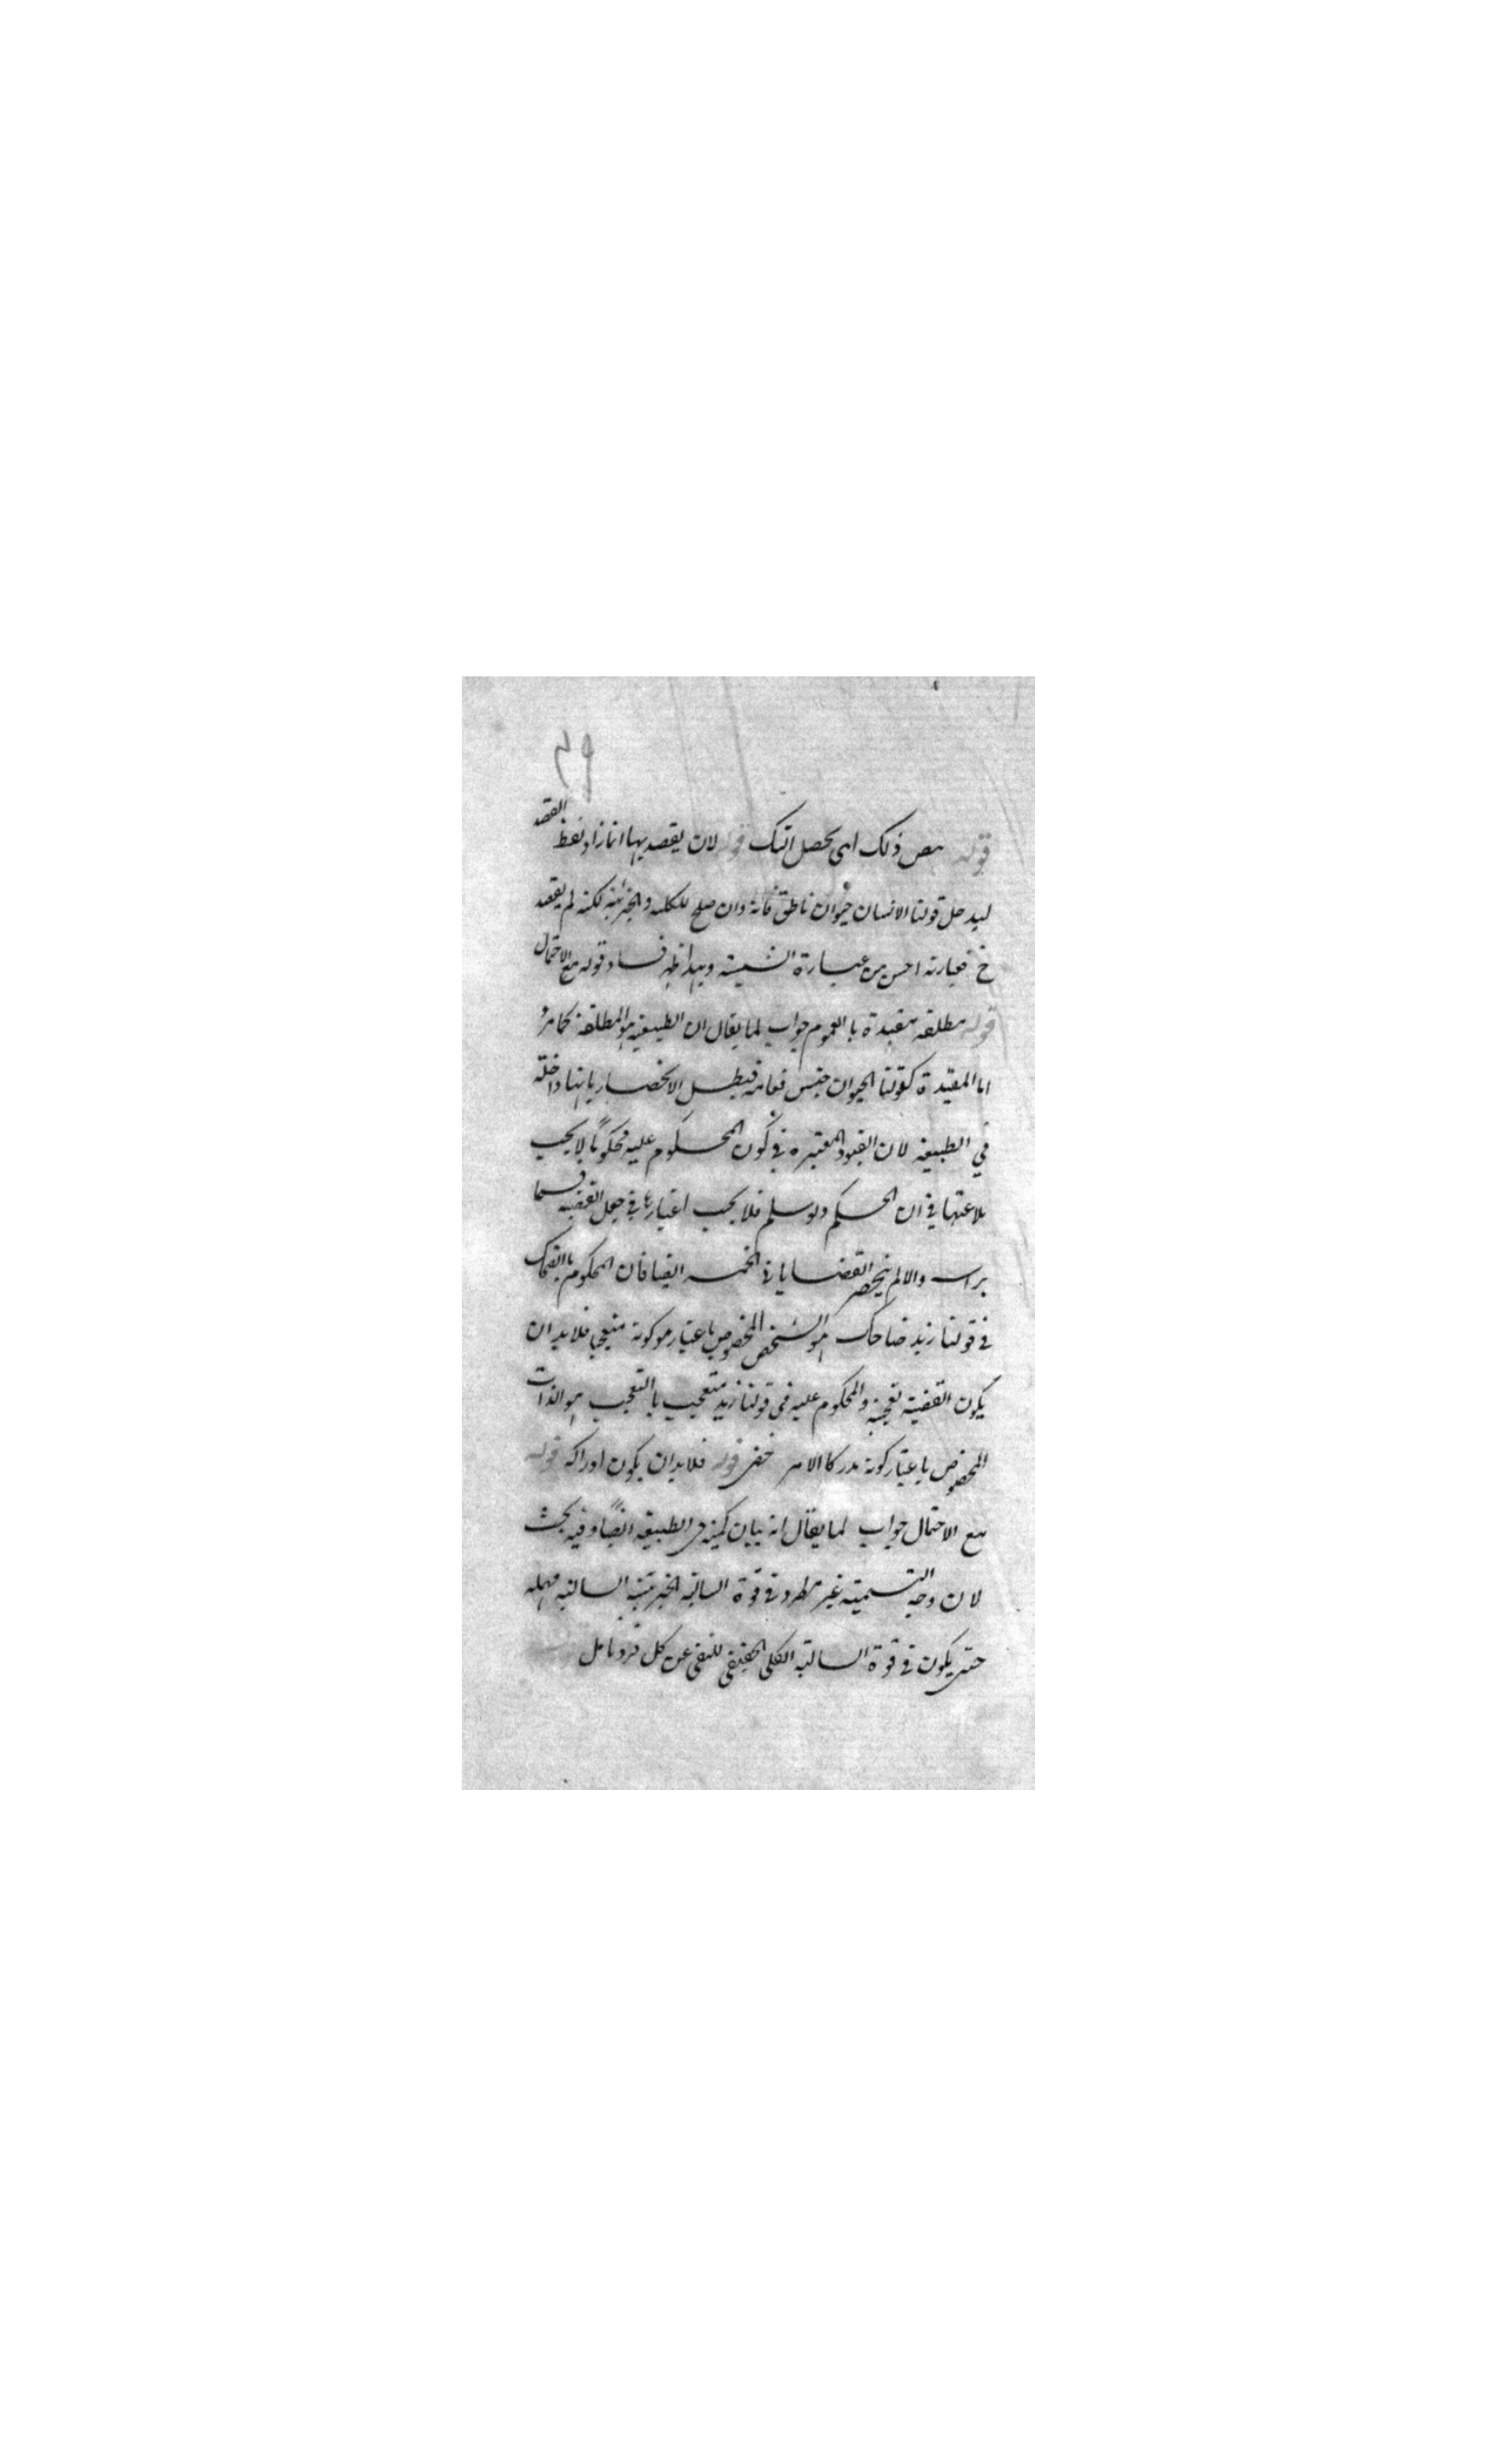 ٤٩
قوله ذلك اى يحصل اتك قوله لان يقصد بها انما زاد لفظ القصد
ليدخل قولنا الانسان حيوان ناطق فانه وان صلح للكلية والجزئية لكنه لم يقصد
ح فعبارته احسن من عبارة الشمسية وبهذا ظهر فساد قوله مع الاحتمال
قوله مطلقة مقيدة بالعموم جواب لما يقال ان الطبيعية هو المطلقة كما مر و
اما المقيدة كقولنا الحيوان جنس فعامة فيبطل الانحصار بانها داخلة
في الطبيعة لان القيود المعتبرة في كون المحكوم عليه محكوما لا يجب
في ان الحكم ولو سلم فلا يجب اعتبارها في جعل القضية قسما
براسه والا لم ينحصر القضايا في الخمسة ايضا فان المحكوم بالضحك
في قولنا زيد ضاحك هو الشخص المخصوص باعتبار هو كونه متعجبا فلا بد ان
يكون القضية تعجبية والمحكوم عليه في قولنا زيد متعجب بالتعجب هو الذات
المخصوص باعتبار كونه مدركا لامر خفى قوله فلا بد ان يكون ادراكه قوله
مع الاحتمال جواب لما يقال انه بيان كمية فى الطبيعة ايضا وفيه بحث
لان وجه التسمية غير مطرد في قوة السالبة الجزئية السالبة مهملة
حتى يكون في قوة السالبة الكلى الحقيقى للنفى عن كل فرد تامل